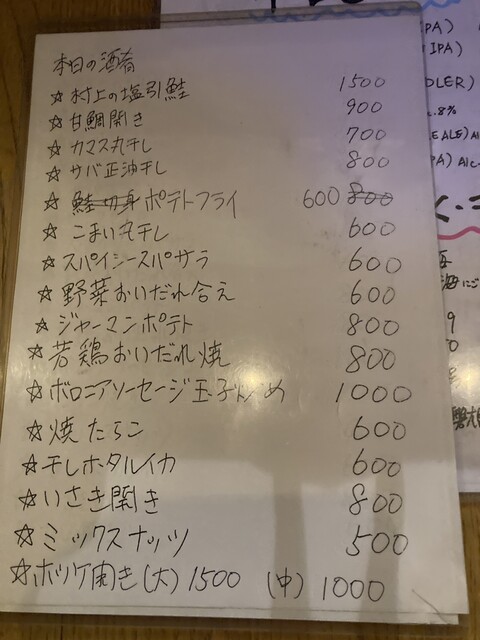 本日の酒肴
☆ 村上の塩引鮭 1500
☆ 甘鯛開き 900
☆ カマス丸干し 700
☆ サバ正油干し 800
☆ 鮭切身 ポテトフライ 600 800
☆ こまい丸干し 600
☆ スパイシースパサラ 600
☆ 野菜おいだれ合え 600
☆ ジャーマンポテト 800
☆ 若鶏おいだれ焼 800
☆ ボロニアソーセージ玉子炒め 1000
☆ 焼たらこ 600
☆ 干しホタルイカ 600
☆ いさき開き 800
☆ ミックスナッツ 500
☆ ホッケ開き(大) 1500 (中) 1000
PA)
IPA)
DLER)
.8%
EALE) Alc
PA) Alc